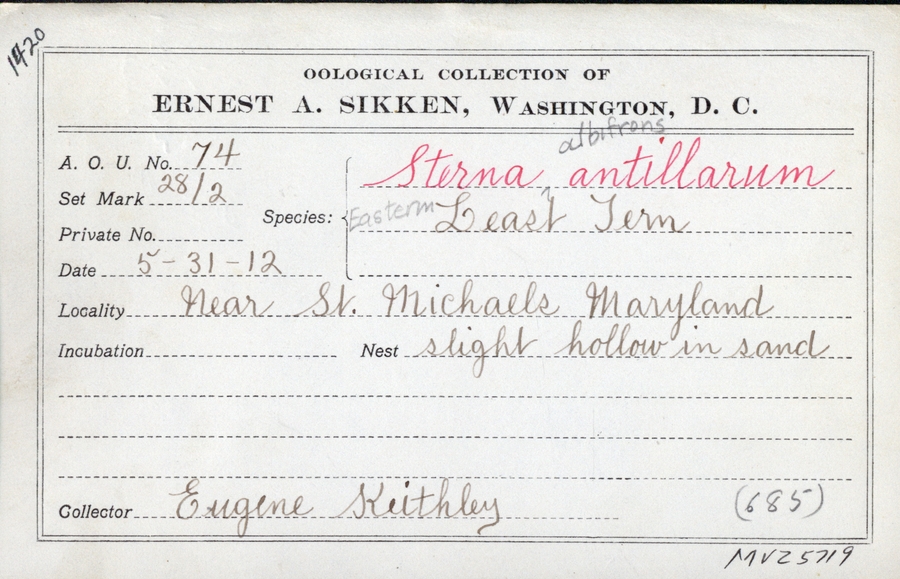 1420
OOLOGICAL COLLECTION OF
ERNEST A. SIKKEN, WASHINGTON, D. C.
albifrons
A. O. U. No. 74
Sterna ^ antillarum
Set Mark 28/2
Species: Eastern Least Tern
Private No.
Date 5-31-12
Locality Near St. Michaels Maryland
Incubation Nest slight hollow in sand
Collector Eugene Keithley
(685)
MVZ 5719